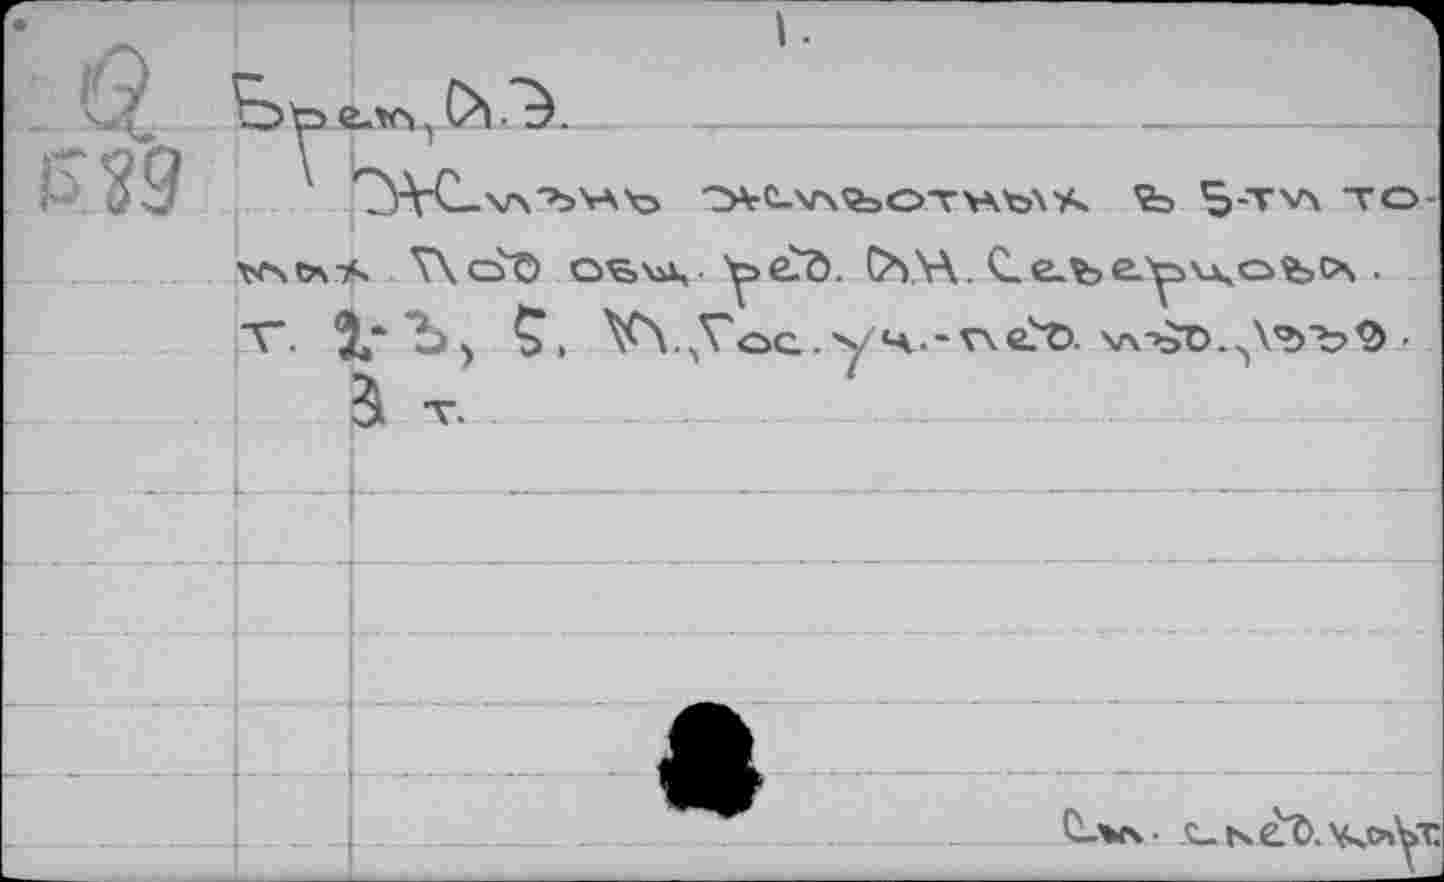 1.
Q
Брем, А.Э.
Б89
Жизнь животных в 5-ти то-
мах. Под общ. ред. А.Н. Северцова.
т. 2-3, 5. М., Гос. уч.-пед. изд., 1939.
3 т.
См. след. карт.